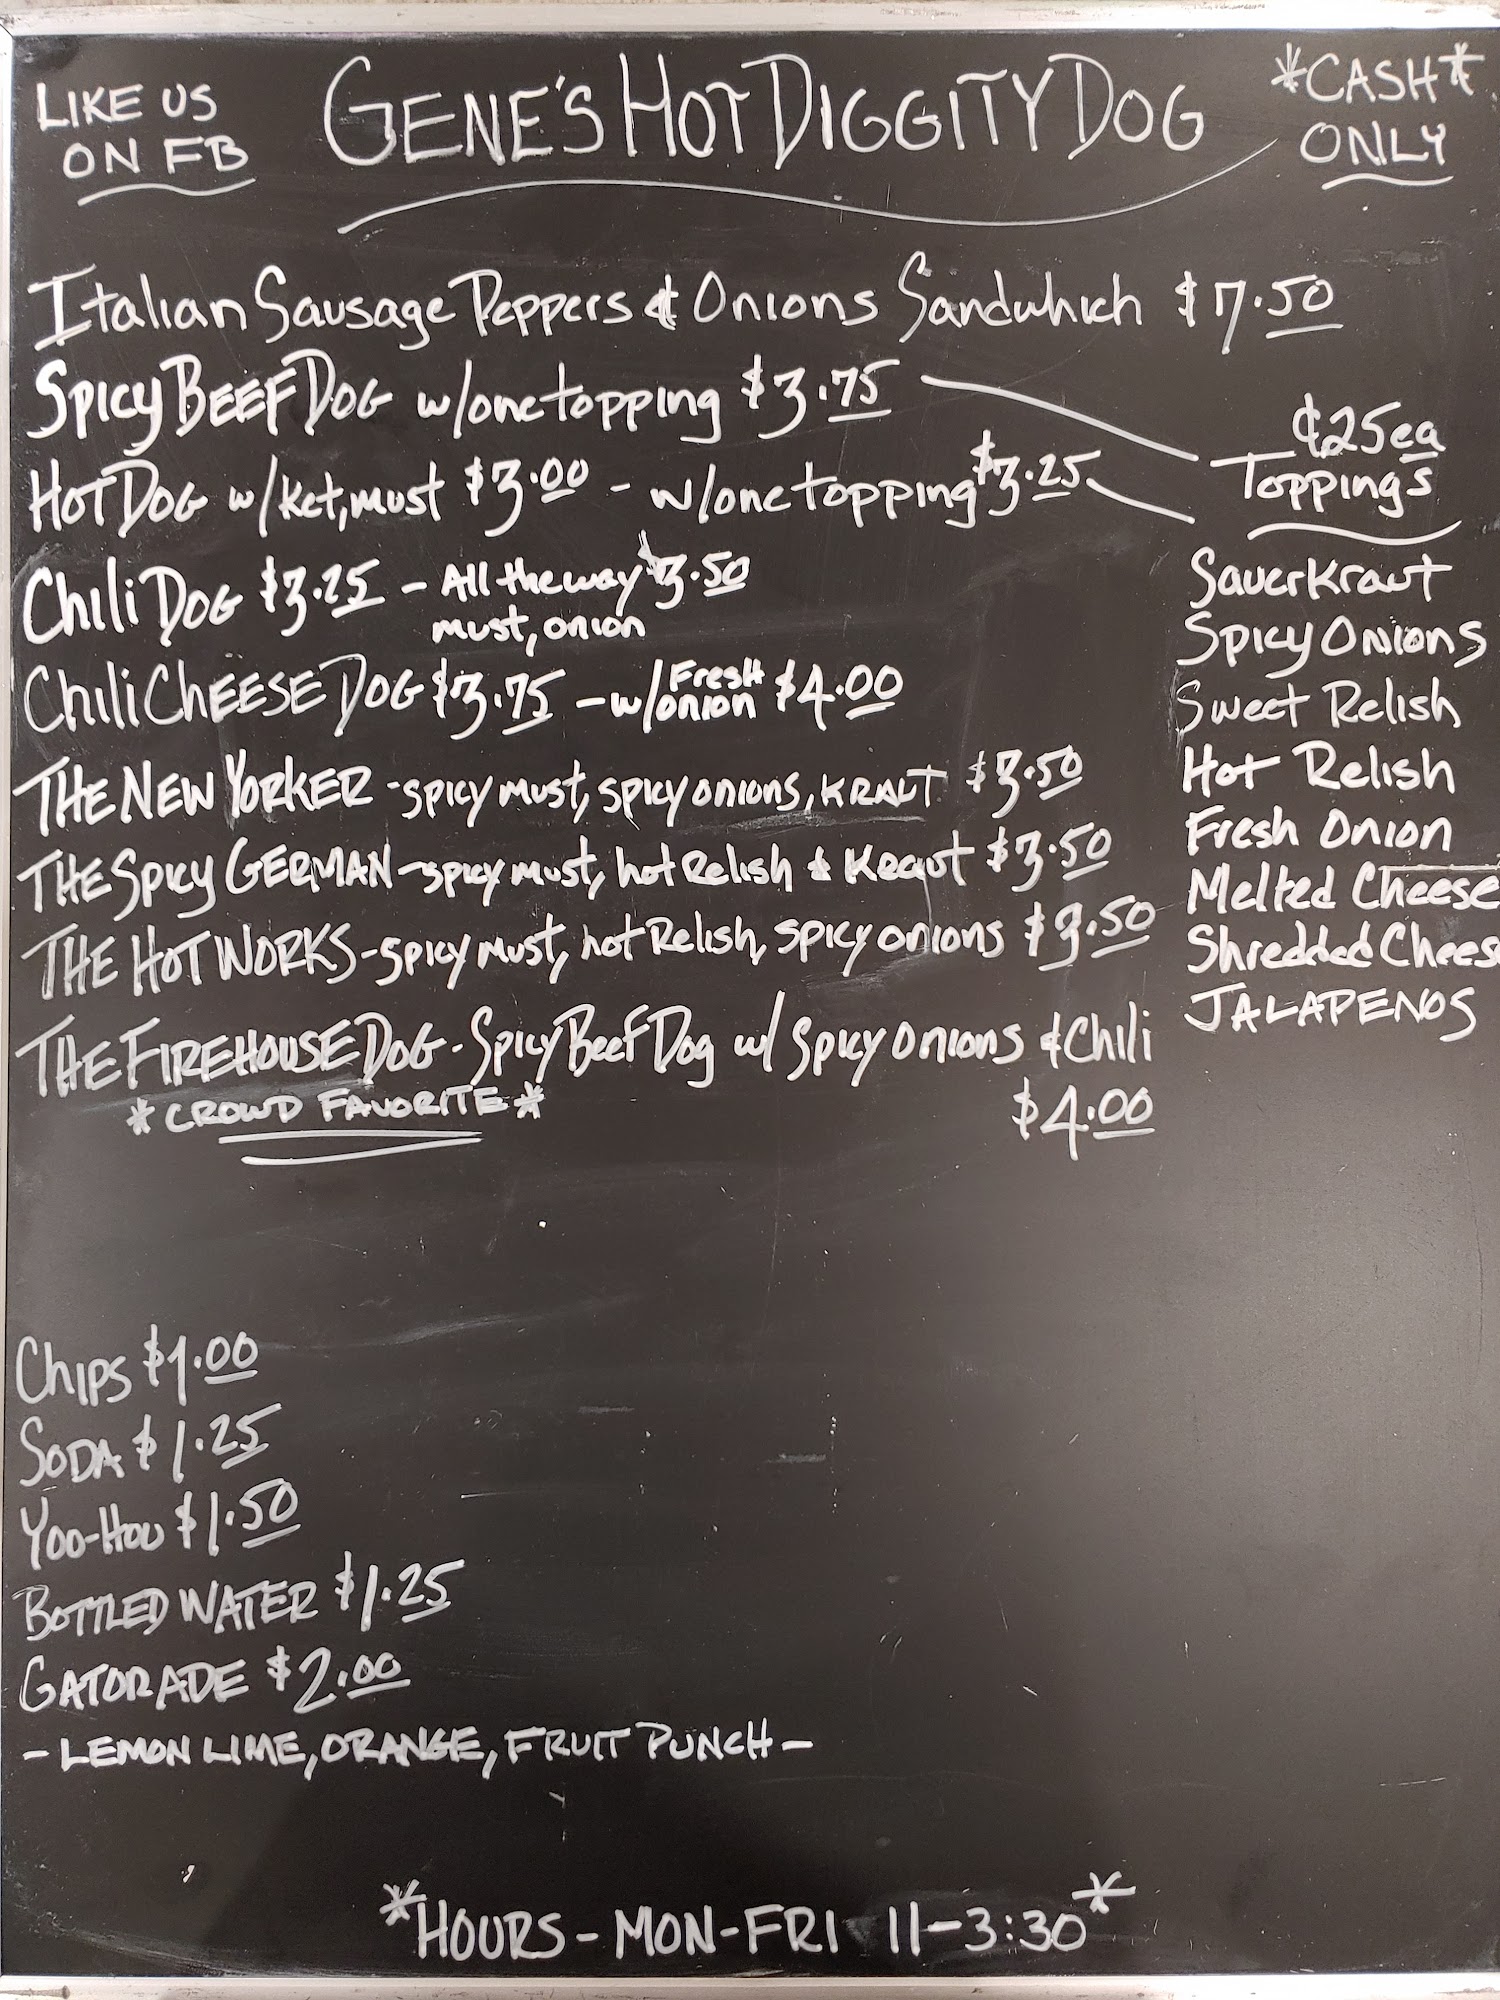 LIKE US
ON FB
GENE'S HOT DIGGITY DOG
*CASH*
ONLY
Italian Sausage Peppers & Onions Sandwhich $7.50
SPICY BEEF DOG w/one topping $3.75
HOT DOG w/ket, must $3.00 - w/one topping $3.25
CHILI DOG $3.25 - All the way $3.50
must, onion
CHILI CHEESE DOG $3.75 - w/Fresh onion $4.00
THE NEW YORKER - spicy must, spicy onions, KRAUT $3.50
THE SPICY GERMAN - spicy must, hot Relish & Kraut $3.50
THE HOT WORKS - spicy must, hot Relish, spicy onions $3.50
THE FIREHOUSE DOG - Spicy Beef Dog w/ spicy onions & Chili
*CROWD FAVORITE*
$4.00
¢25ea
Toppings
Sauerkraut
Spicy Onions
Sweet Relish
Hot Relish
Fresh Onion
Melted Cheese
Shredded Cheese
JALAPENOS
CHIPS $1.00
SODA $1.25
YOO-HOO $1.50
BOTTLED WATER $1.25
GATORADE $2.00
- LEMON LIME, ORANGE, FRUIT PUNCH -
*HOURS - MON-FRI 11-3:30*